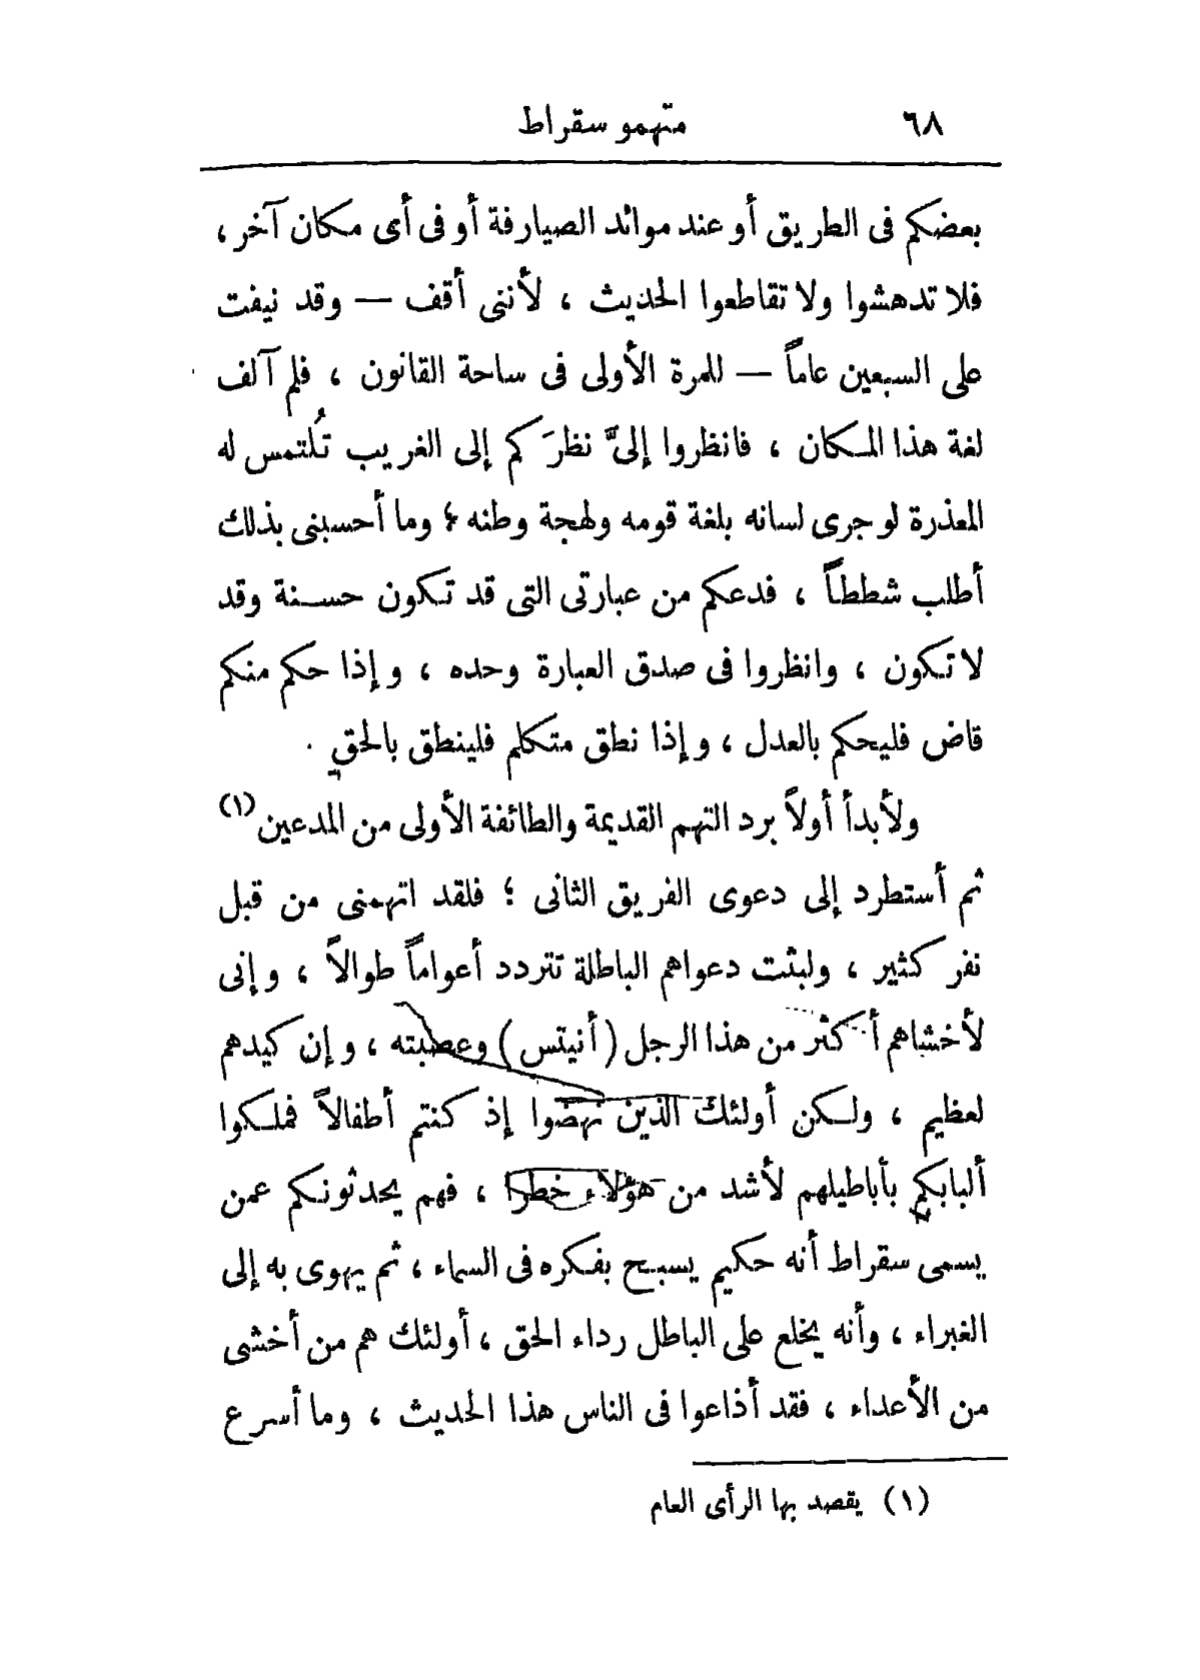 ٦٨
متهمو سقراط
بعضكم فى الطريق أو عند موائد الصيارفة أو فى أى مكان آخر ،
فلا تدهشوا ولا تقاطعوا الحديث ، لأننى أقف — وقد نيفت
على السبعين عاماً — للمرة الأولى فى ساحة القانون ، فلم آلف
لغة هذا المكان ، فانظروا إلىَّ نظرَكم إلى الغريب تُلتمس له
المعذرة لو جرى لسانه بلغة قومه ولهجة وطنه ؛ وما أحسبنى بذلك
أطلب شططاً ، فدعكم من عبارتى التى قد تكون حسنة وقد
لا تكون ، وانظروا فى صدق العبارة وحده ، وإذا حكم منكم
قاض فليحكم بالعدل ، وإذا نطق متكلم فلينطق بالحق .
ولأبدأ أولاً برد التهم القديمة والطائفة الأولى من المدعين (١)
ثم أستطرد إلى دعوى الفريق الثانى ؛ فلقد اتهمنى من قبل
نفر كثير ، ولبثت دعواهم الباطلة تتردد أعواماً طوالاً ، وإنى
لأخشاهم أكثر من هذا الرجل (أنيتس) وعصبته ، وإن كيدهم
لعظيم ، ولكن أولئك الذين نهضوا إذ كنتم أطفالاً فملكوا
ألبابكم بأباطيلهم لأشد من هؤلاء خطراً ، فهم يحدثونكم عمن
يسمى سقراط أنه حكيم يسبح بفكره فى السماء ، ثم يهوى به إلى
الغبراء ، وأنه يخلع على الباطل رداء الحق ، أولئك هم من أخشى
من الأعداء ، فقد أذاعوا فى الناس هذا الحديث ، وما أسرع
(١) يقصد بها الرأى العام